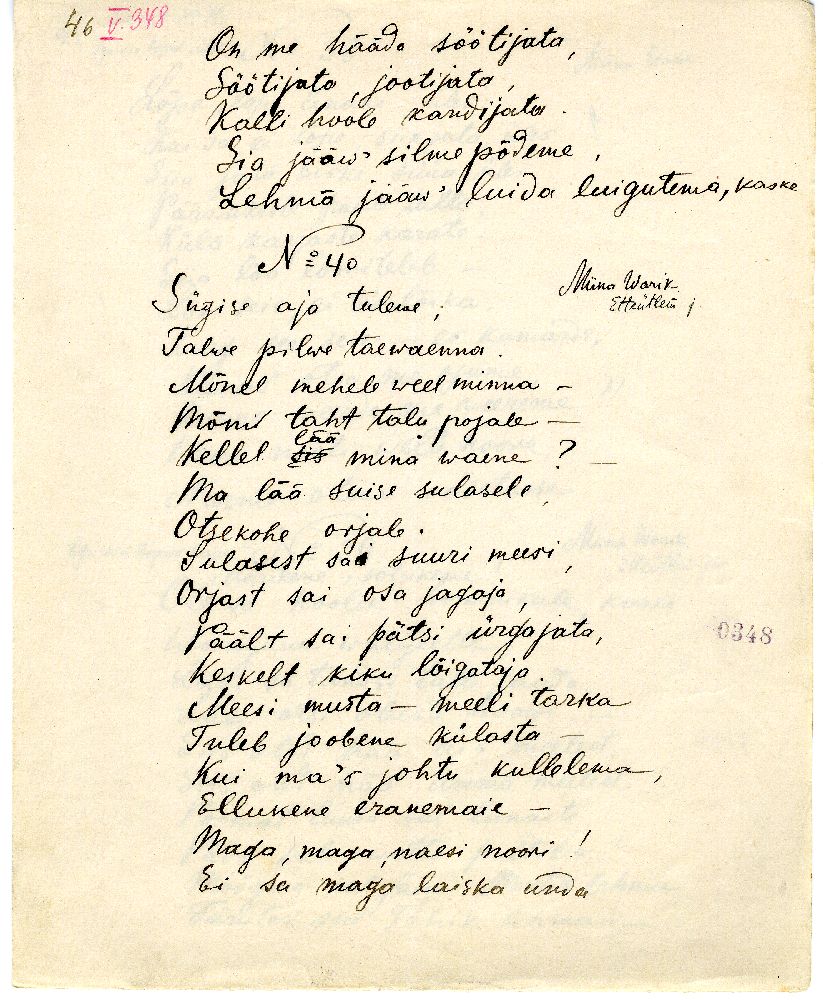 46 V. 348
On me hääda söötijata,
Söötijata, jootijata,
Kalli hoole kandijata.
Sia jääw' silme põdeme,
Lehmä jääw' luida luigutema, kaske
No 40
Miina Warik
Sügise ajo tuleme,
Talwe pilwe taewaenna.
Mõnel mehele weel minna –
Mõnil taht talu pojale –
lää
Kellel sis mina waene? –
Ma lää suise sulasele,
Otsekohe orjale.
Sulasest sai suuri meesi,
Orjast sai osa jagaja,
Päält sai pätsi ürgajata,
0348
Keskelt kiku lõigataja.
Meesi musta – meeli tarka
Tuleb joobene külasta –
Kui ma's johtu kullelema,
Ellukene eranemaie –
Maga, maga, naesi noori!
Ei sa maga laiska unda